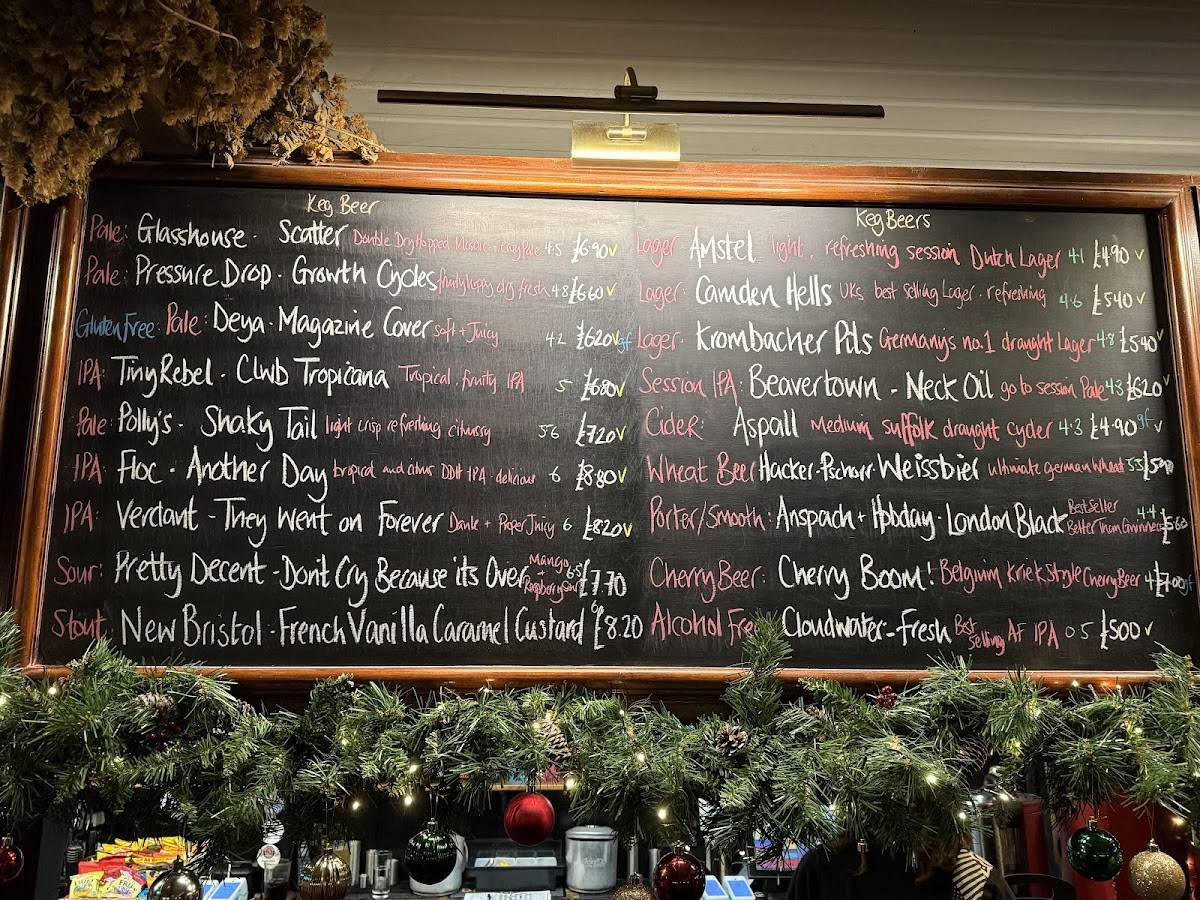 Keg Beer
Pale: Glasshouse - Scatter Double Dry Hopped Mosaic - Easy Pale 4.5 £6.90 v
Pale: Pressure Drop - Growth Cycles fruity hoppy dry fresh 4.8 £6.60 v
Gluten Free Pale: Deya - Magazine Cover soft + Juicy 4.2 £6.20 v gf
IPA: Tiny Rebel - Clwb Tropicana Tropical, fruity IPA 5 £6.80 v
Pale: Polly's - Shaky Tail light crisp refreshing citrussy 5.6 £7.20 v
IPA: Floc - Another Day tropical and citrus DDH IPA - delicious 6 £8.80 v
IPA: Verdant - They Went on Forever Dank + Proper Juicy 6 £8.20 v
Sour: Pretty Decent - Don't Cry Because its Over Mango + Raspberry Sour 6.5 £7.70
Stout: New Bristol - French Vanilla Caramel Custard 6 £8.20
Keg Beers
Lager Amstel light, refreshing session Dutch Lager 4.1 £4.90 v
Lager: Camden Hells UKs best selling Lager - refreshing 4.6 £5.40 v
Lager: Krombacher Pils Germany's no.1 draught Lager 4.8 £5.40 v
Session IPA: Beavertown - Neck Oil go to session Pale 4.3 £6.20 v
Cider: Aspall Medium suffolk draught cyder 4.3 £4.90 gf v
Wheat Beer Hacker-Pschorr Weissbier ultimate german wheat 5.5
Porter/Smooth: Anspach + Hobday - London Black Best Seller Better Than Guinness 4.4 £5.60
Cherry Beer: Cherry Boom! Belgium Kriek Style Cherry Beer 4 £7.00 gf
Alcohol Free Cloudwater - Fresh Best selling AF IPA 0.5 £5.00 v